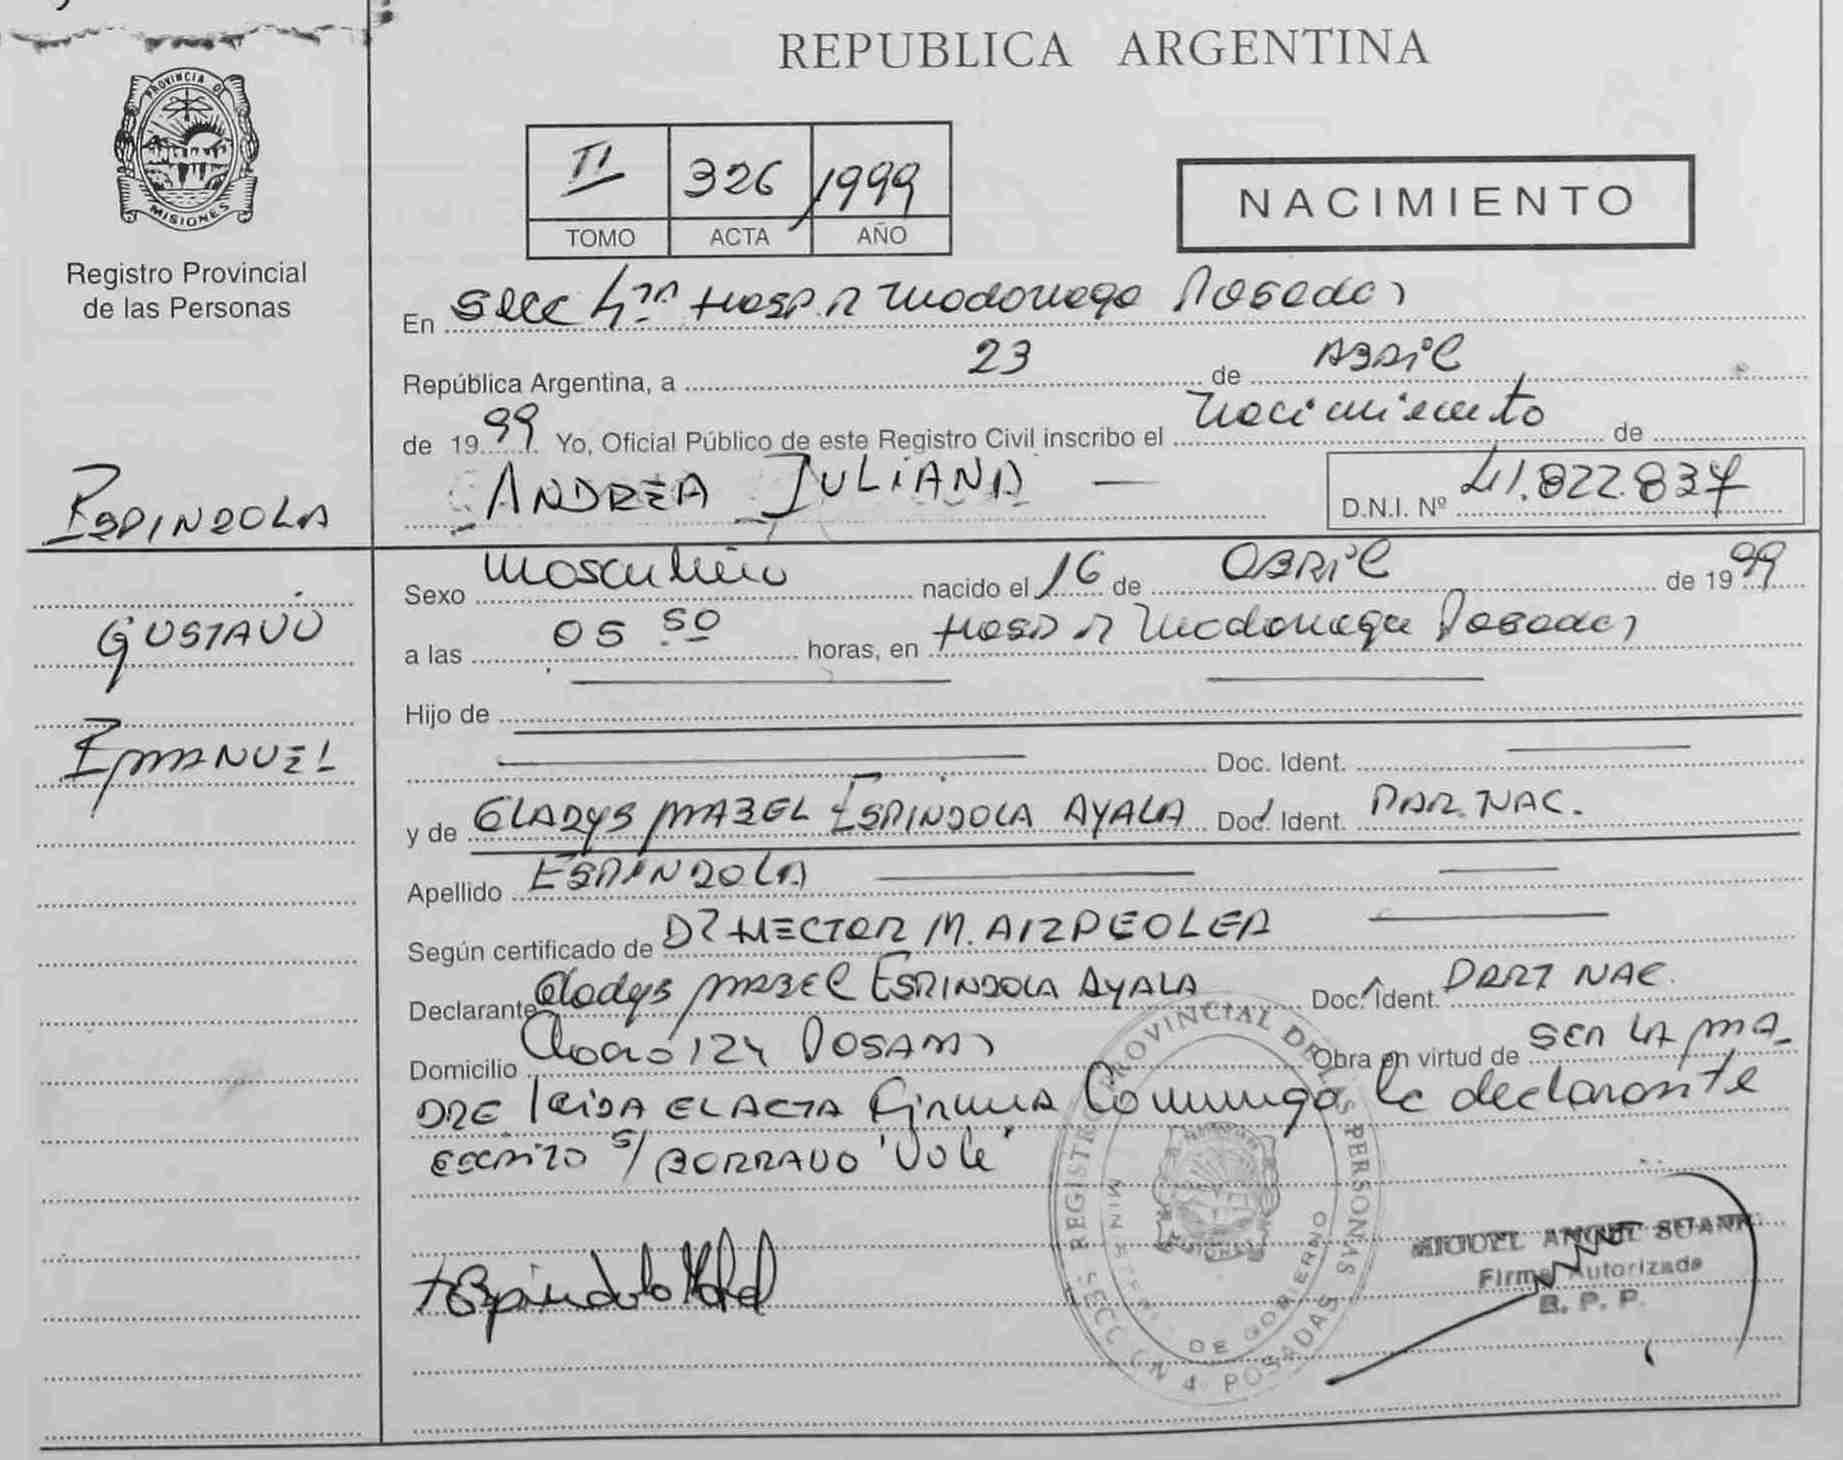 REPUBLICA ARGENTINA
PROVINCIA DE
MISIONES
Registro Provincial
de las Personas
II 326 1999
TOMO ACTA AÑO
NACIMIENTO
En Secc 4ta Hosp R Madariaga Posadas
República Argentina, a 23 de ABRIL
de 1999 Yo, Oficial Público de este Registro Civil inscribo el nacimiento de
ANDREA JULIANA
D.N.I. Nº 41.822.837
ESPINDOLA
GUSTAVO
EMANUEL
Sexo masculino nacido el 16 de ABRIL de 1999
a las 05 50 horas, en Hosp R Madariaga Posadas
Hijo de
Doc. Ident.
y de GLADYS MABEL ESPINDOLA AYALA Doc. Ident. PAR. NAC.
Apellido ESPINDOLA
Según certificado de Dr HECTOR M. AIZPEOLEA
Declarante Gladys MABEL ESPINDOLA AYALA Doc. Ident. PART NAC.
Domicilio 124 POSADAS Obra en virtud de SER LA MA-
DRE leida EL ACTA FIRMA Conmigo la declarante
escrito s/ BORRADO 'Vale'
Espindola Mabel
REGISTRO PROVINCIAL DE LAS PERSONAS
MINISTERIO DE GOBIERNO
SECCION 4 POSADAS
MIGUEL ANGEL
Firma Autorizada
R. P. P.